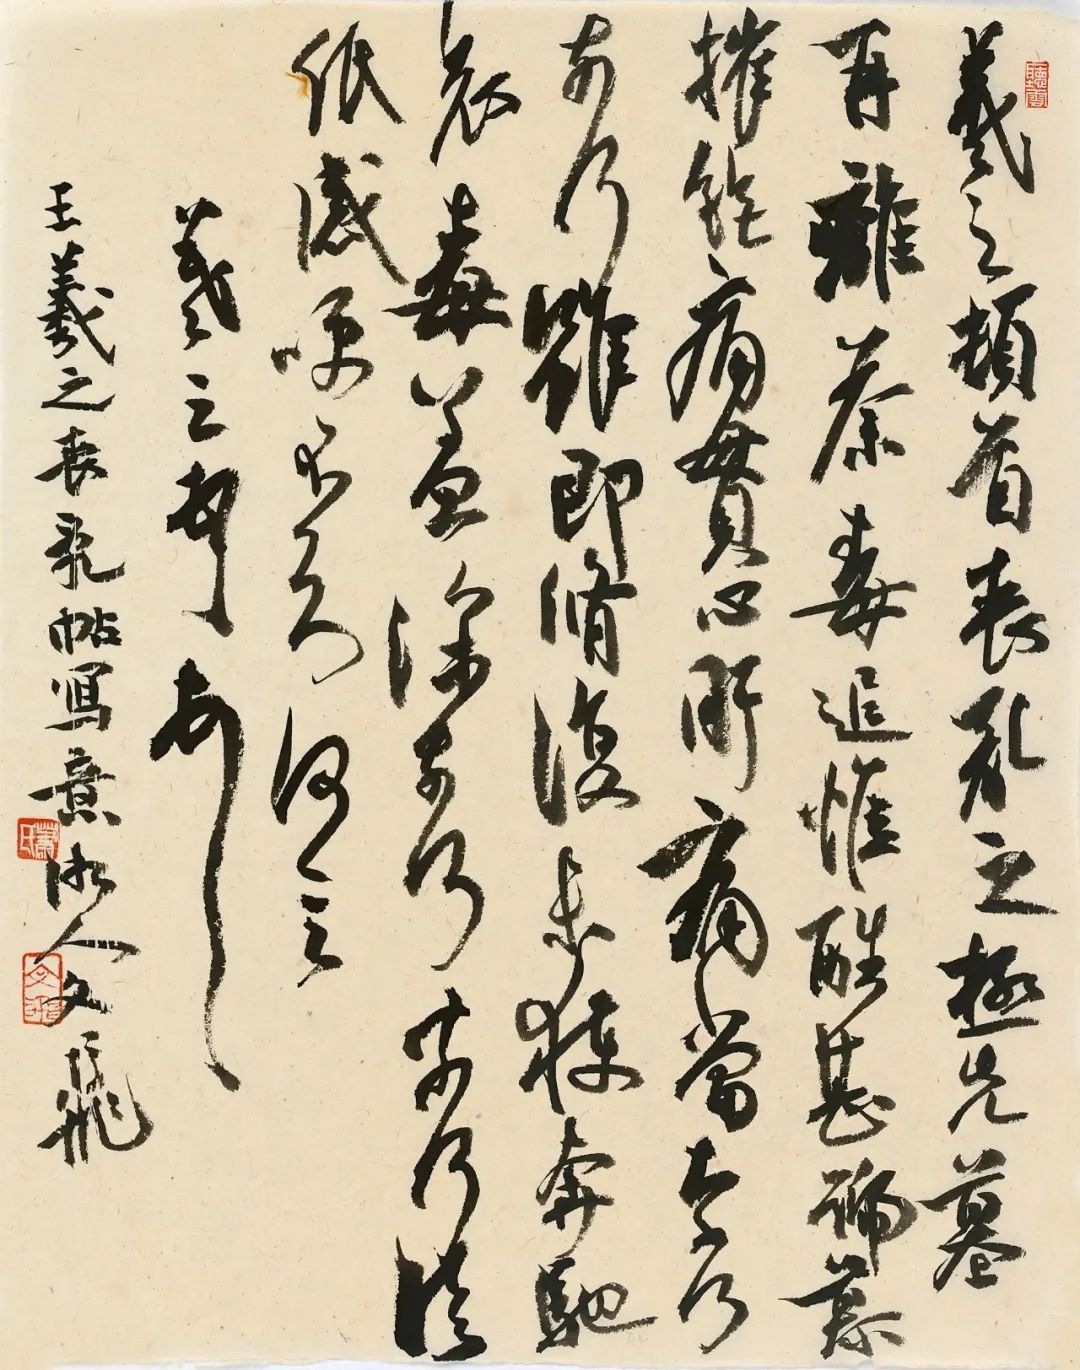 羲之頓首喪亂之極先墓
再離荼毒追惟酷甚號慕
摧絕痛貫心肝痛當柰何
柰何雖即脩復未獲奔馳
哀毒益深柰何柰何臨
紙感哽不知何言
羲之頓首
王羲之喪亂帖寫意湘人文飛
聽雲
蕭氏
文飛